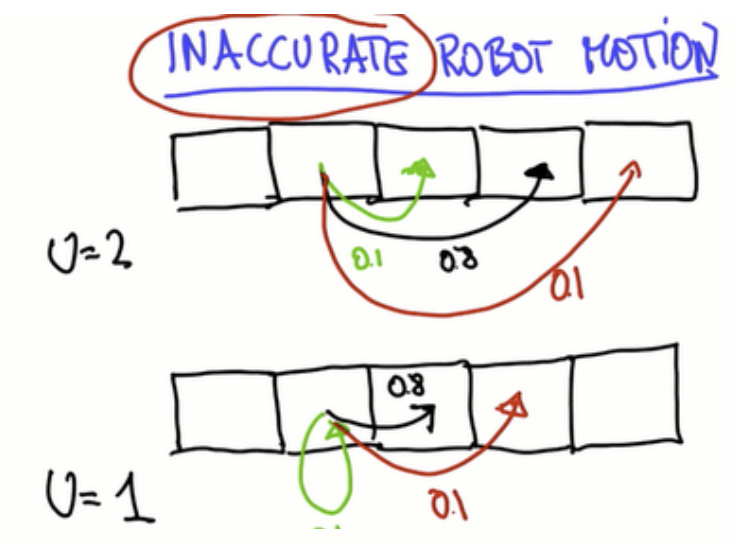 INACCURATE ROBOT MOTION
U=2
0.1 0.8
0.1
0.8
U=1
0.1